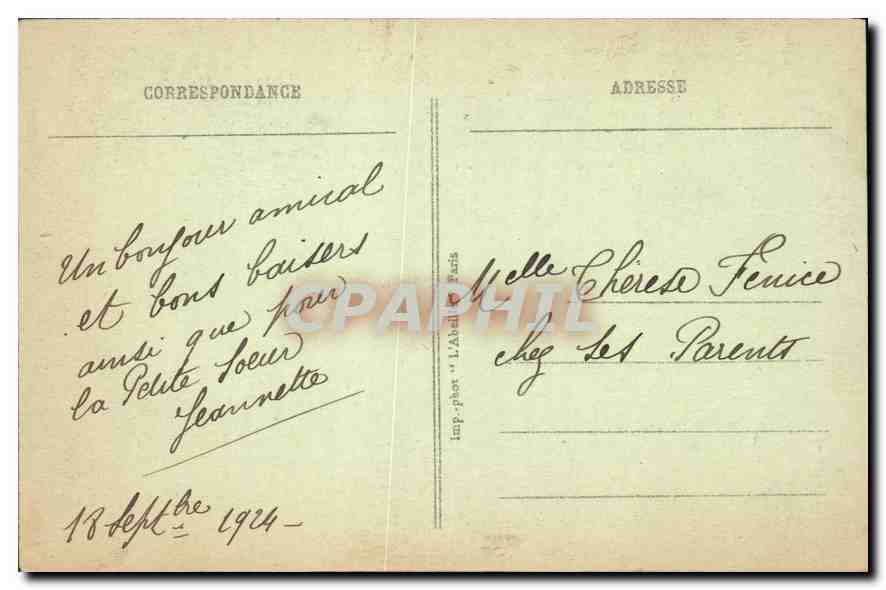 CORRESPONDANCE
Un bonjour amical
et bons baisers
ainsi que pour
la Petite Soeur
Jeannette
18 Septbre 1924
Imp.-phot " L'Abeille Paris
ADRESSE
Melle Thérèse Fenice
chez ses Parents
CPAPHIL